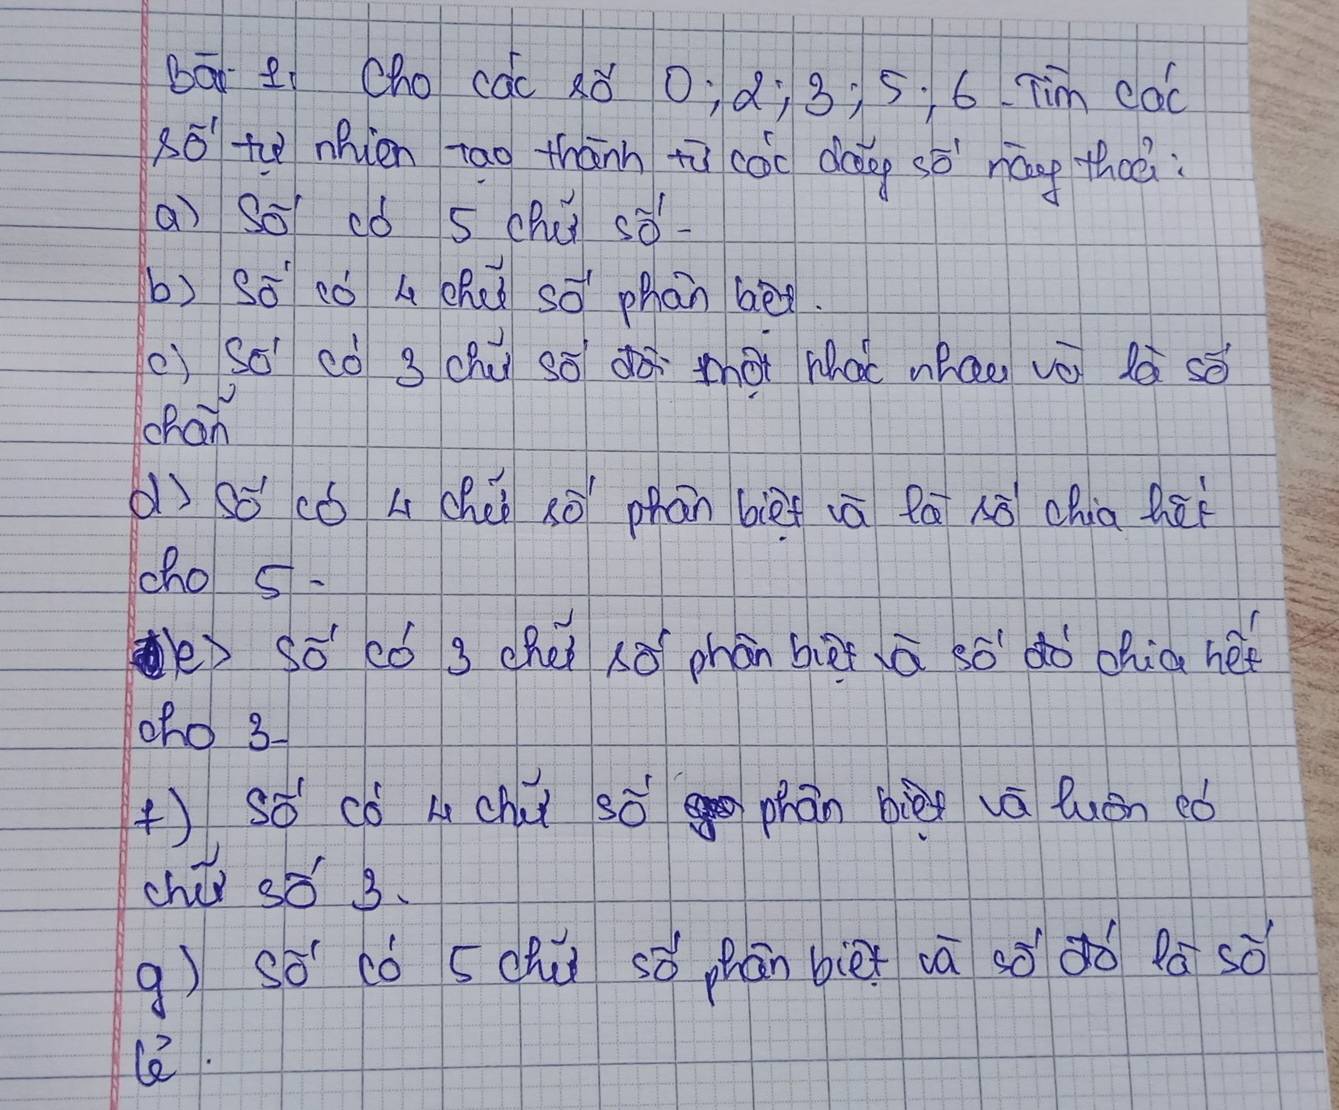 Bài 1: Cho các số 0; 2; 3; 5; 6. Tìm các
số tự nhiên tạo thành từ các dãy số này thoả:
a) Số có 5 chữ số.
b) Số có 4 chữ số phân biệt.
c) Số có 3 chữ số đôi một khác nhau và là số
chẵn
d) Số có 4 chữ số phân biệt và là số chia hết
cho 5.
e) Số có 3 chữ số phân biệt và số đó chia hết
cho 3.
f) Số có 4 chữ số phân biệt và luôn có
chữ số 3.
g) Số có 5 chữ số phân biệt và số đó là số
lẻ.